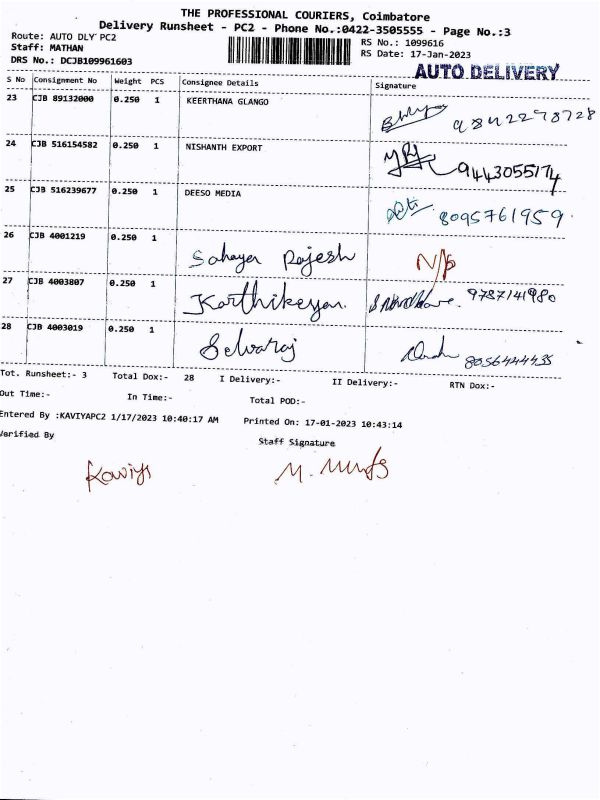 THE PROFESSIONAL COURIERS, Coimbatore
Delivery Runsheet - PC2 - Phone No.:0422-3505555 - Page No.:3
Route: AUTO DLY PC2
RS No.: 1099616
Staff: MATHAN
RS Date: 17-Jan-2023
DRS No.: DCJB109961603
AUTO DELIVERY
S No Consignment No Weight PCS Consignee Details Signature
23 CJB 89132000 0.250 1 KEERTHANA GLANGO 9842278728
24 CJB 516154582 0.250 1 NISHANTH EXPORT 9443055174
25 CJB 516239677 0.250 1 DEESO MEDIA 8095761959
26 CJB 4001219 0.250 1 Sahaya Rajesh N/P
27 CJB 4003807 0.250 1 Karthikeyan. 9787141980
28 CJB 4003019 0.250 1 Selvaraj 8056444435
Tot. Runsheet:- 3 Total Dox:- 28 I Delivery:- II Delivery:- RTN Dox:-
Out Time:- In Time:- Total POD:-
Entered By :KAVIYAPC2 1/17/2023 10:40:17 AM Printed On: 17-01-2023 10:43:14
Verified By Staff Signature
Kaviya